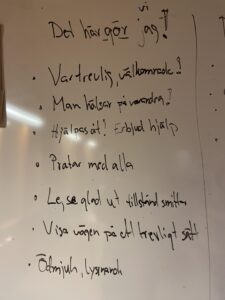 vi
Det här gör jag!
• Var trevlig, välkomnade!
• Man hälsar på varandra!
• Hjälpas åt! Erbjud hjälp
• Pratar med alla
• Le, se glad ut tillstånd smittar
• Visa vägen på ett trevligt sätt
• Ödmjuk,